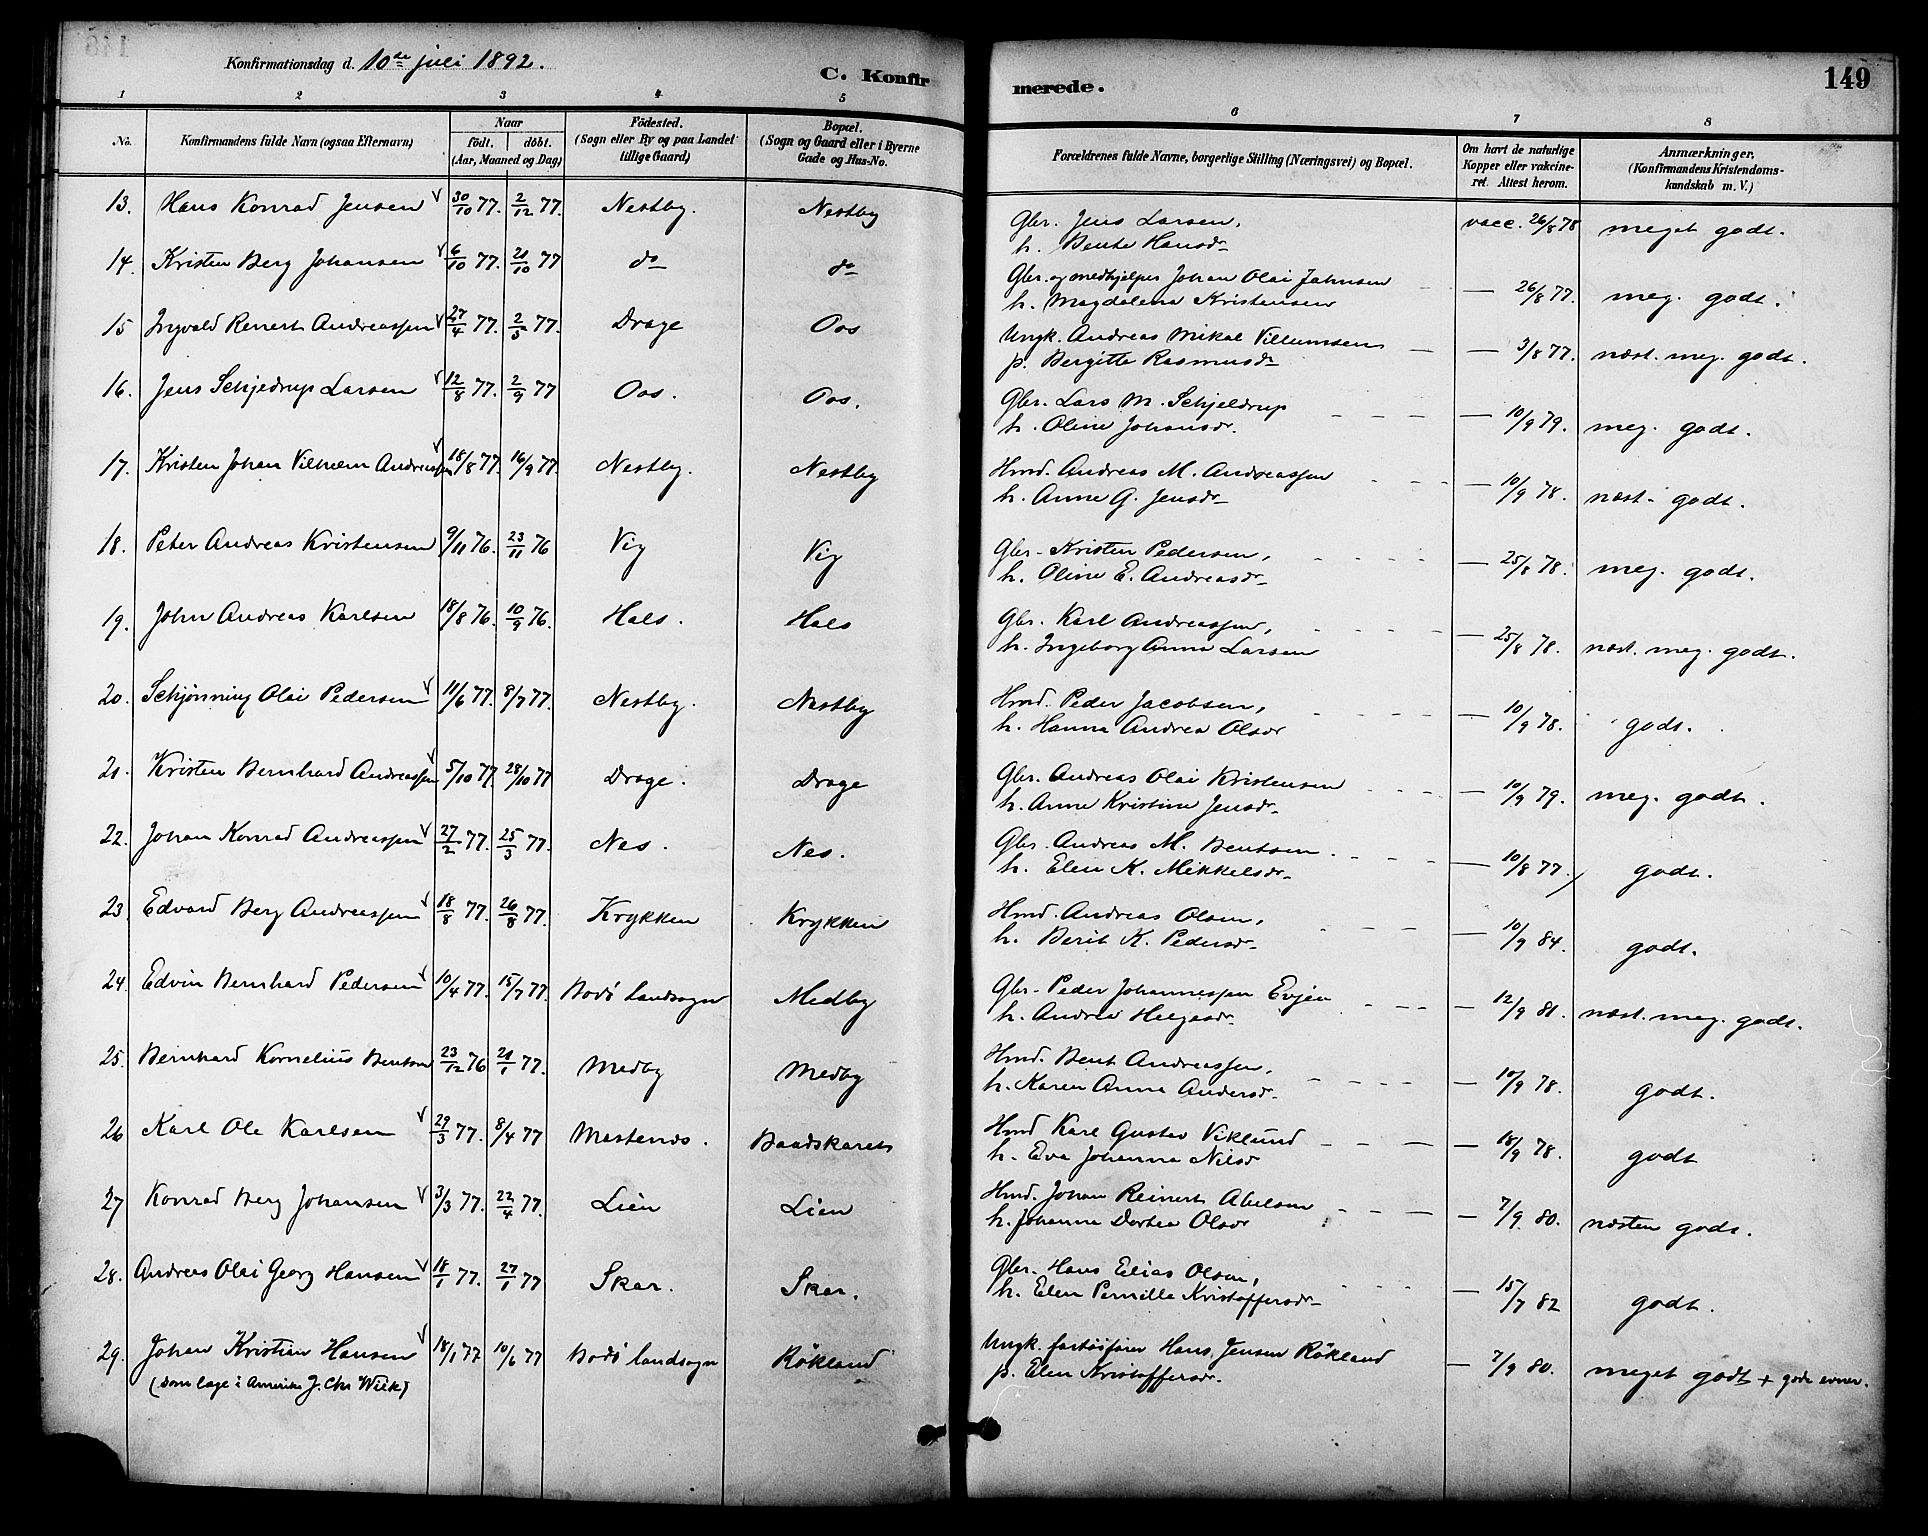 Konfirmationsdag d. 10de juli 1892.
C. Konfirmerede.
149
1 2 3 4 5 6 7 8
No. Konfirmandens fulde Navn (ogsaa Efternavn) Naar födt. döbt. (Aar, Maaned og Dag) Födested. (Sogn eller By og paa Landet tillige Gaard) Bopæl. (Sogn og Gaard eller i Byerne Gade og Hus-No. Forældrenes fulde Navne, borgerlige Stilling (Næringsvei) og Bopæl. Om havt de naturlige Kopper eller vakcineret. Attest herom. Anmærkninger, (Konfirmandens Kristendomskundskab m. V.)
13. Hans Konrad Jensen v 30/10 77. 2/12 77. Nestby. Nestby Gbr. Jens Larsen, vacc. 26/8 78 meget godt.
h. Bente Hansdr
14. Kristen Berg Johansen v 6/10 77. 21/10 77 do do Gbr. og medhjelper Johan Olai Jahnsen — 26/8 77. meg. godt.
h. Magdalena Kristensen
15 Ingvald Renert Andreassen v 27/4 77. 2/5 77. Drage Oos Ungk. Andreas Mikal Villumsen — 3/8 77. næst. meg. godt.
p. Bergitte Rasmusdr
16. Jens Schjedrup Larsen v 12/8 77. 2/9 77 Oos. Oos. Gbr. Lars M. Schjeldrup — 10/9 79. meg. godt.
h. Oline Johansdr.
17. Kristen Johan Vilhelm Andreassen v 18/8 77. 16/9 77. Nestby. Nestby Hmd. Andreas M. Andreassen — 10/9 78. næst. godt.
h. Anne G. Jensdr
18. Peter Andreas Kristensen 9/11 76. 23/11 76 Vig Vig Gbr. Kristen Pedersen, — 25/8 78. meg. godt.
h. Oline E. Andreasdr
19. John Andreas Karlsen 18/8 76. 10/9 76. Hals. Hals Gbr. Karl Andreassen, — 25/8 78. næst. meg. godt.
h. Ingeborg Anna Larsen
20. Schjønning Olai Pedersen v 11/6 77. 8/7 77. Nestby. Nestby Hmd. Peder Jacobsen, — 10/9 78. godt.
h. Hanna Andrea Olsdr
21. Kristen Bernhard Andreassen v 5/10 77. 28/10 77 Drage. Drage Gbr. Andreas Olai Kristensen — 10/9 79. meg. godt.
h. Anne Kristine Jensdr.
22. Johan Konrad Andreassen v 27/2 77. 25/3 77. Nes. Nes. Gbr. Andreas M. Bentsen. — 10/8 77 godt.
h. Elen K. Mikkelsdr
23. Edvard Berg Andreassen v 18/8 77. 26/8 77. Krykken Krykken Hmd. Andreas Olsen, — 10/9 84. godt.
h. Berit K. Pedersdr
24. Edvin Bernhard Pedersen v 10/4 77. 15/7 77. Bodö landsogn Medby Gbr. Peder Johannessen Evjen — 12/9 81. næst. meg. godt.
h. Andrea Helgesdr
25. Bernhard Kornelius Bentsen 23/12 76 21/1 77. Medby Medby Hmd. Bent Andreassen, — 10/9 78. godt.
h. Karen Anna Andersdr.
26 Karl Ole Karlsen v 29/3 77. 8/4 77 Mastenos. Baadskaret Hmd Karl Gustav Viklund — 18/9 78. godt
h. Eva Johanna Nilsdr
27 Konrad Berg Johansen v 3/3 77. 22/4 77. Lien Lien Hmd. Johan Reinert Abelsen — 7/9. 80. næsten godt.
h. Johanna Dortea Olsdr
28. Andreas Olai Georg Hansen v 18/1 77. 27/1 77 Skar. Skar. Gbr. Hans Elias Olsen, — 15/7 82 godt.
h. Elen Pernille Kristoffersdr
29. Johan Kristian Hansen v 18/1 77 10/6 77 Bodö landsogn Rökland Ungk. Hans Jensen Rökland — 7/9 80. meget godt + gode evner.
(som læge i Amerika J. Chr Wiik) p. Elen Kristoffersdr.